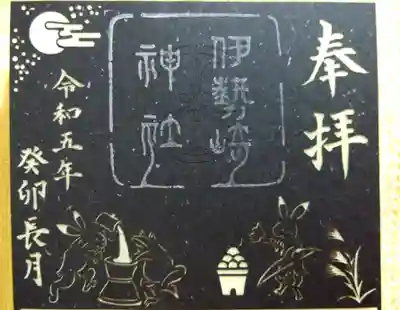 奉拝
伊勢崎
神社
令和五年
癸卯長月